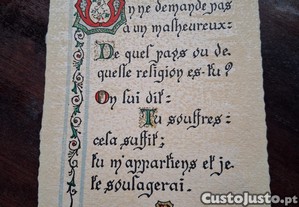 On ne demande pas
à un malheureux:
De quel pays ou de
quelle religion es-tu?
On lui dit:
Tu souffres:
cela suffit;
tu m'appartiens et je
te soulagerai.
CustoJusto.pt